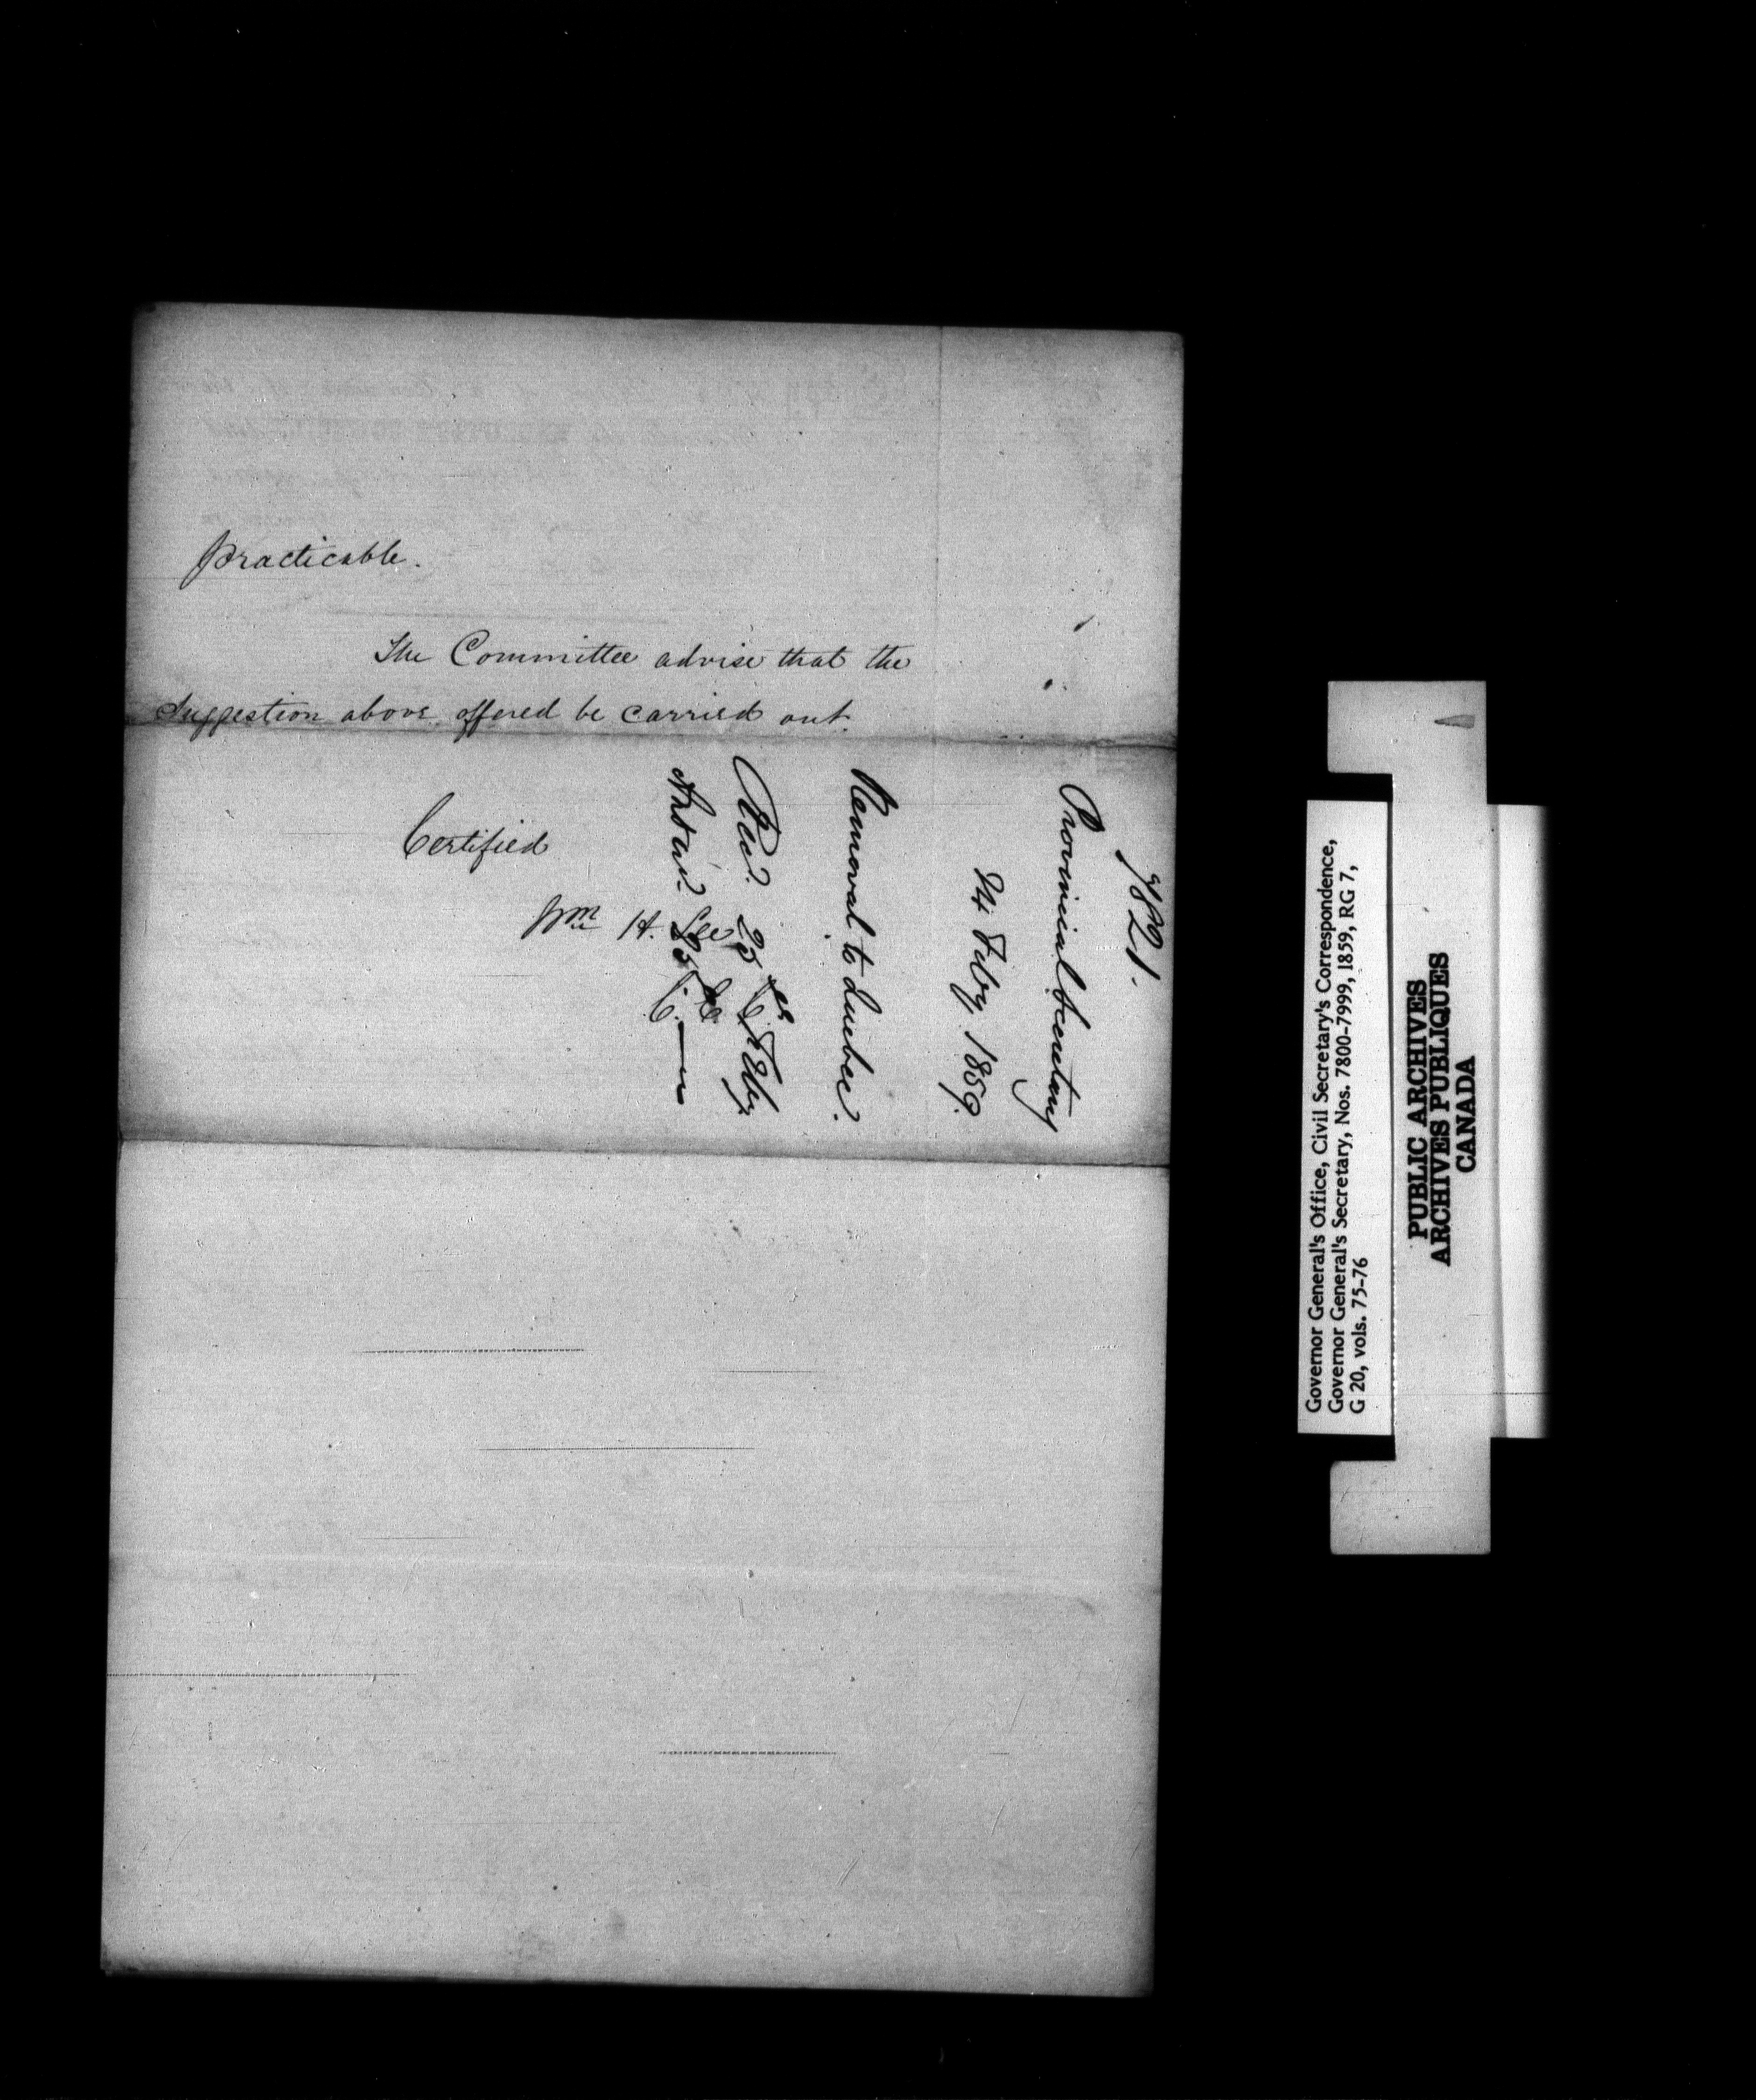 practicable.
The Committee advise that the
Suggestion above offered be carried out.
Certified
Wm H. Lee
C. E. C.
7821.
Provincial Secretary
24 Feby 1859.
Removal to Quebec.
Recd. 25th Feby
Answd. 25th
Governor General's Office, Civil Secretary's Correspondence,
Governor General's Secretary, Nos. 7800-7999, 1859, RG 7,
G 20, vols. 75-76
PUBLIC ARCHIVES
ARCHIVES PUBLIQUES
CANADA